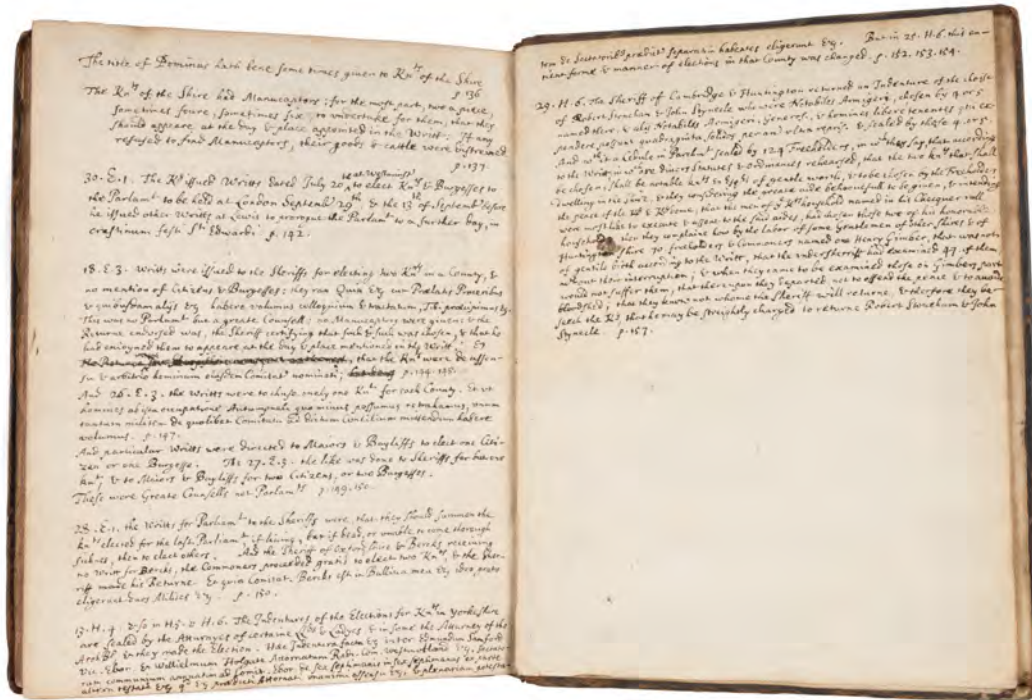 The title of Dominus hath bene some times given to Knts of the Shire
p. 136
The Knts of the Shire had Manucaptors; for the most part, two a piece,
sometimes foure, sometimes six, to undertake for them, that they
should appeare at the day & place appointed in the Writt; If any
refused to find Manucaptors, their goods & cattle were distreined
p. 137.
at Westminstr
30. E. 1. The Kg issued Writts dated July 20 to elect Knts & Burgesses to
the Parlamt to be held at London Septemb 29th & the 13th of Septemb before
he issued other Writts at Lewis to prorogue the Parlamt to a further day, in
crastinum festi Sti Edwardi p. 142.
18. E. 3. Writts were issued to the Sheriffs for electing two Knts in a County, &
no mention of Citizens & Burgesses; they ran Quia &c cum Prelatis Proceribus
& quibusdam aliis &c habere volumus colloquium & tractatum, Tibi precipimus &c.
This was no Parlamt but a greate Counsell; no Manucaptors were given & the
Returne endorsed was, the Sheriff certifying that such & such was chosen, & that he
had enjoyned them to appeare at the day & place mentioned in the Writt;
that the Knts were de assen-
su & arbitrio hominum ejusdem Comitat nominati; p. 144. 145.
And 26. E. 3. the Writts were to chuse onely one Knt for each County. Et ut
homines ab ista occupatione Autumpnali quo minus possumus retrahamus, unum
tantum militem de quolibet Comitatu ad dictum Concilium mittendum habere
volumus. p. 147.
And particular Writts were directed to Maiors & Bayliffs to elect one Citi-
zen or one Burgesse. 27. E. 3. the like was done to Sheriffs for
Knt, & to Maiors & Bayliffs for two Citizens, or two Burgesses.
These were Greate Counsells not Parlamts p. 149. 150.
28. E. 1. the Writts for Parliamt to the Sheriffs were, that they should summon the
Knts elected for the last Parliamt, if living, but if dead, or unable to come through
sicknes, then to elect others. And the Sheriff of Oxfordshire & Berks receiving
no Writt for Berks, the Commoners proceeded gratis to elect two Knts, & the Sher-
iff made his Returne. Et quia Comitat. Berks est in Balliva mea &c ideo
eligerunt duos Milites &c. p. 150.
13. H. 4. & so in H. 5. & H. 6. The Indentures of the Elections for Knts in Yorkeshire
are sealed by the Atturnyes of certaine Lds & Ladyes, & in some the Atturney of the
Archbp. & they made the Election. Hæc Indentura facta &c inter Edmundum Sanford
Vic. Ebor. Et Willielmum Holgate Attornatum Radi. Com. Westmorland &c.
ton de predict separatim habentes eligerunt &c. But in 25. H. 6. this an-
tient forme & manner of elections in that County was changed. p. 152. 153. 154.
29. H. 6. The Sheriff of Cambridge & Huntington returned an Indenture of the choise
of Robert Stoneham & John Styuecle who were Notabiles Armigeri, chosen by 4 or 5
named there, & alij Notabiles Armigeri, Generosi, & homines libere tenentes qui ex-
pendere possunt quadraginta solidos per ann ultra repris. & sealed by those 4 or 5.
And wth it a Cedule in Parchmt sealed by 124 Freeholders, in wch they say that according
to the Writt in wch are divers Statutes & Ordinances rehearsed, that the two knts that shall
be chosen, shall be notable knts & Esqrs of gentle worth, & to be chosen by the Freeholders
dwelling in the shire. & they considering the greate aide behoovefull to be given, & entending
the peace of the
were most like to execute & assent to the said aides, had chosen those two of his honorable
household; they complaine how by the labor of some Gentlemen of other Shires & of
Huntington shire 70 freeholders & Commoners named one Henry Gimber, that was not
of gentile birth according to the Writt, that the undersherriff had examined 47 of them
without their interruption; & when they came to be examined those on Gimbers part
would not suffer them, that thereupon they departed, not to offend the peace & to avoide
bloodshed; that they knew not whome the Sheriff will returne, & therefore they be-
seech the Kg that he may be streightly charged to returne Robert Stoneham & John
Styuecle. p. 157.